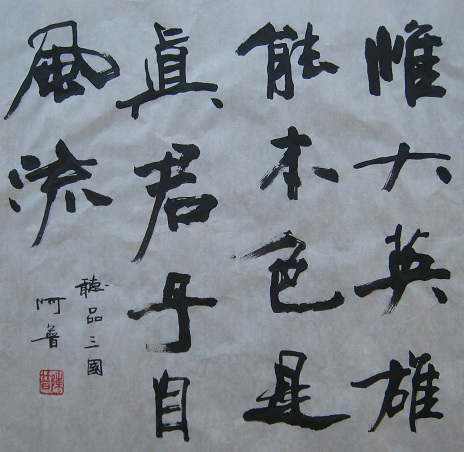 惟大英雄
能本色是
真君子自
風流
聽品三國
阿普